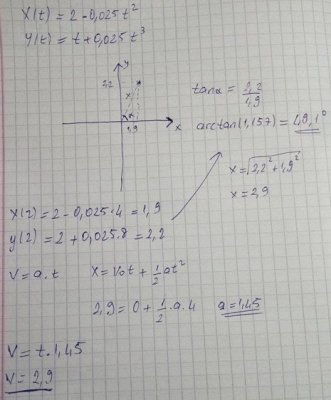 X(t) = 2 - 0,025 t²
Y(t) = t + 0,025 t³
y
2,2
x
α
1,9
x
tanα = 2,2/1,9
arctan(1,157) = 49,1°
x = √2,2² + 1,9²
x = 2,9
X(2) = 2 - 0,025·4 = 1,9
y(2) = 2 + 0,025·8 = 2,2
V = a.t
X = V₀t + 1/2 at²
2,9 = 0 + 1/2 .a.4
a = 1,45
V = t.1,45
V = 2,9